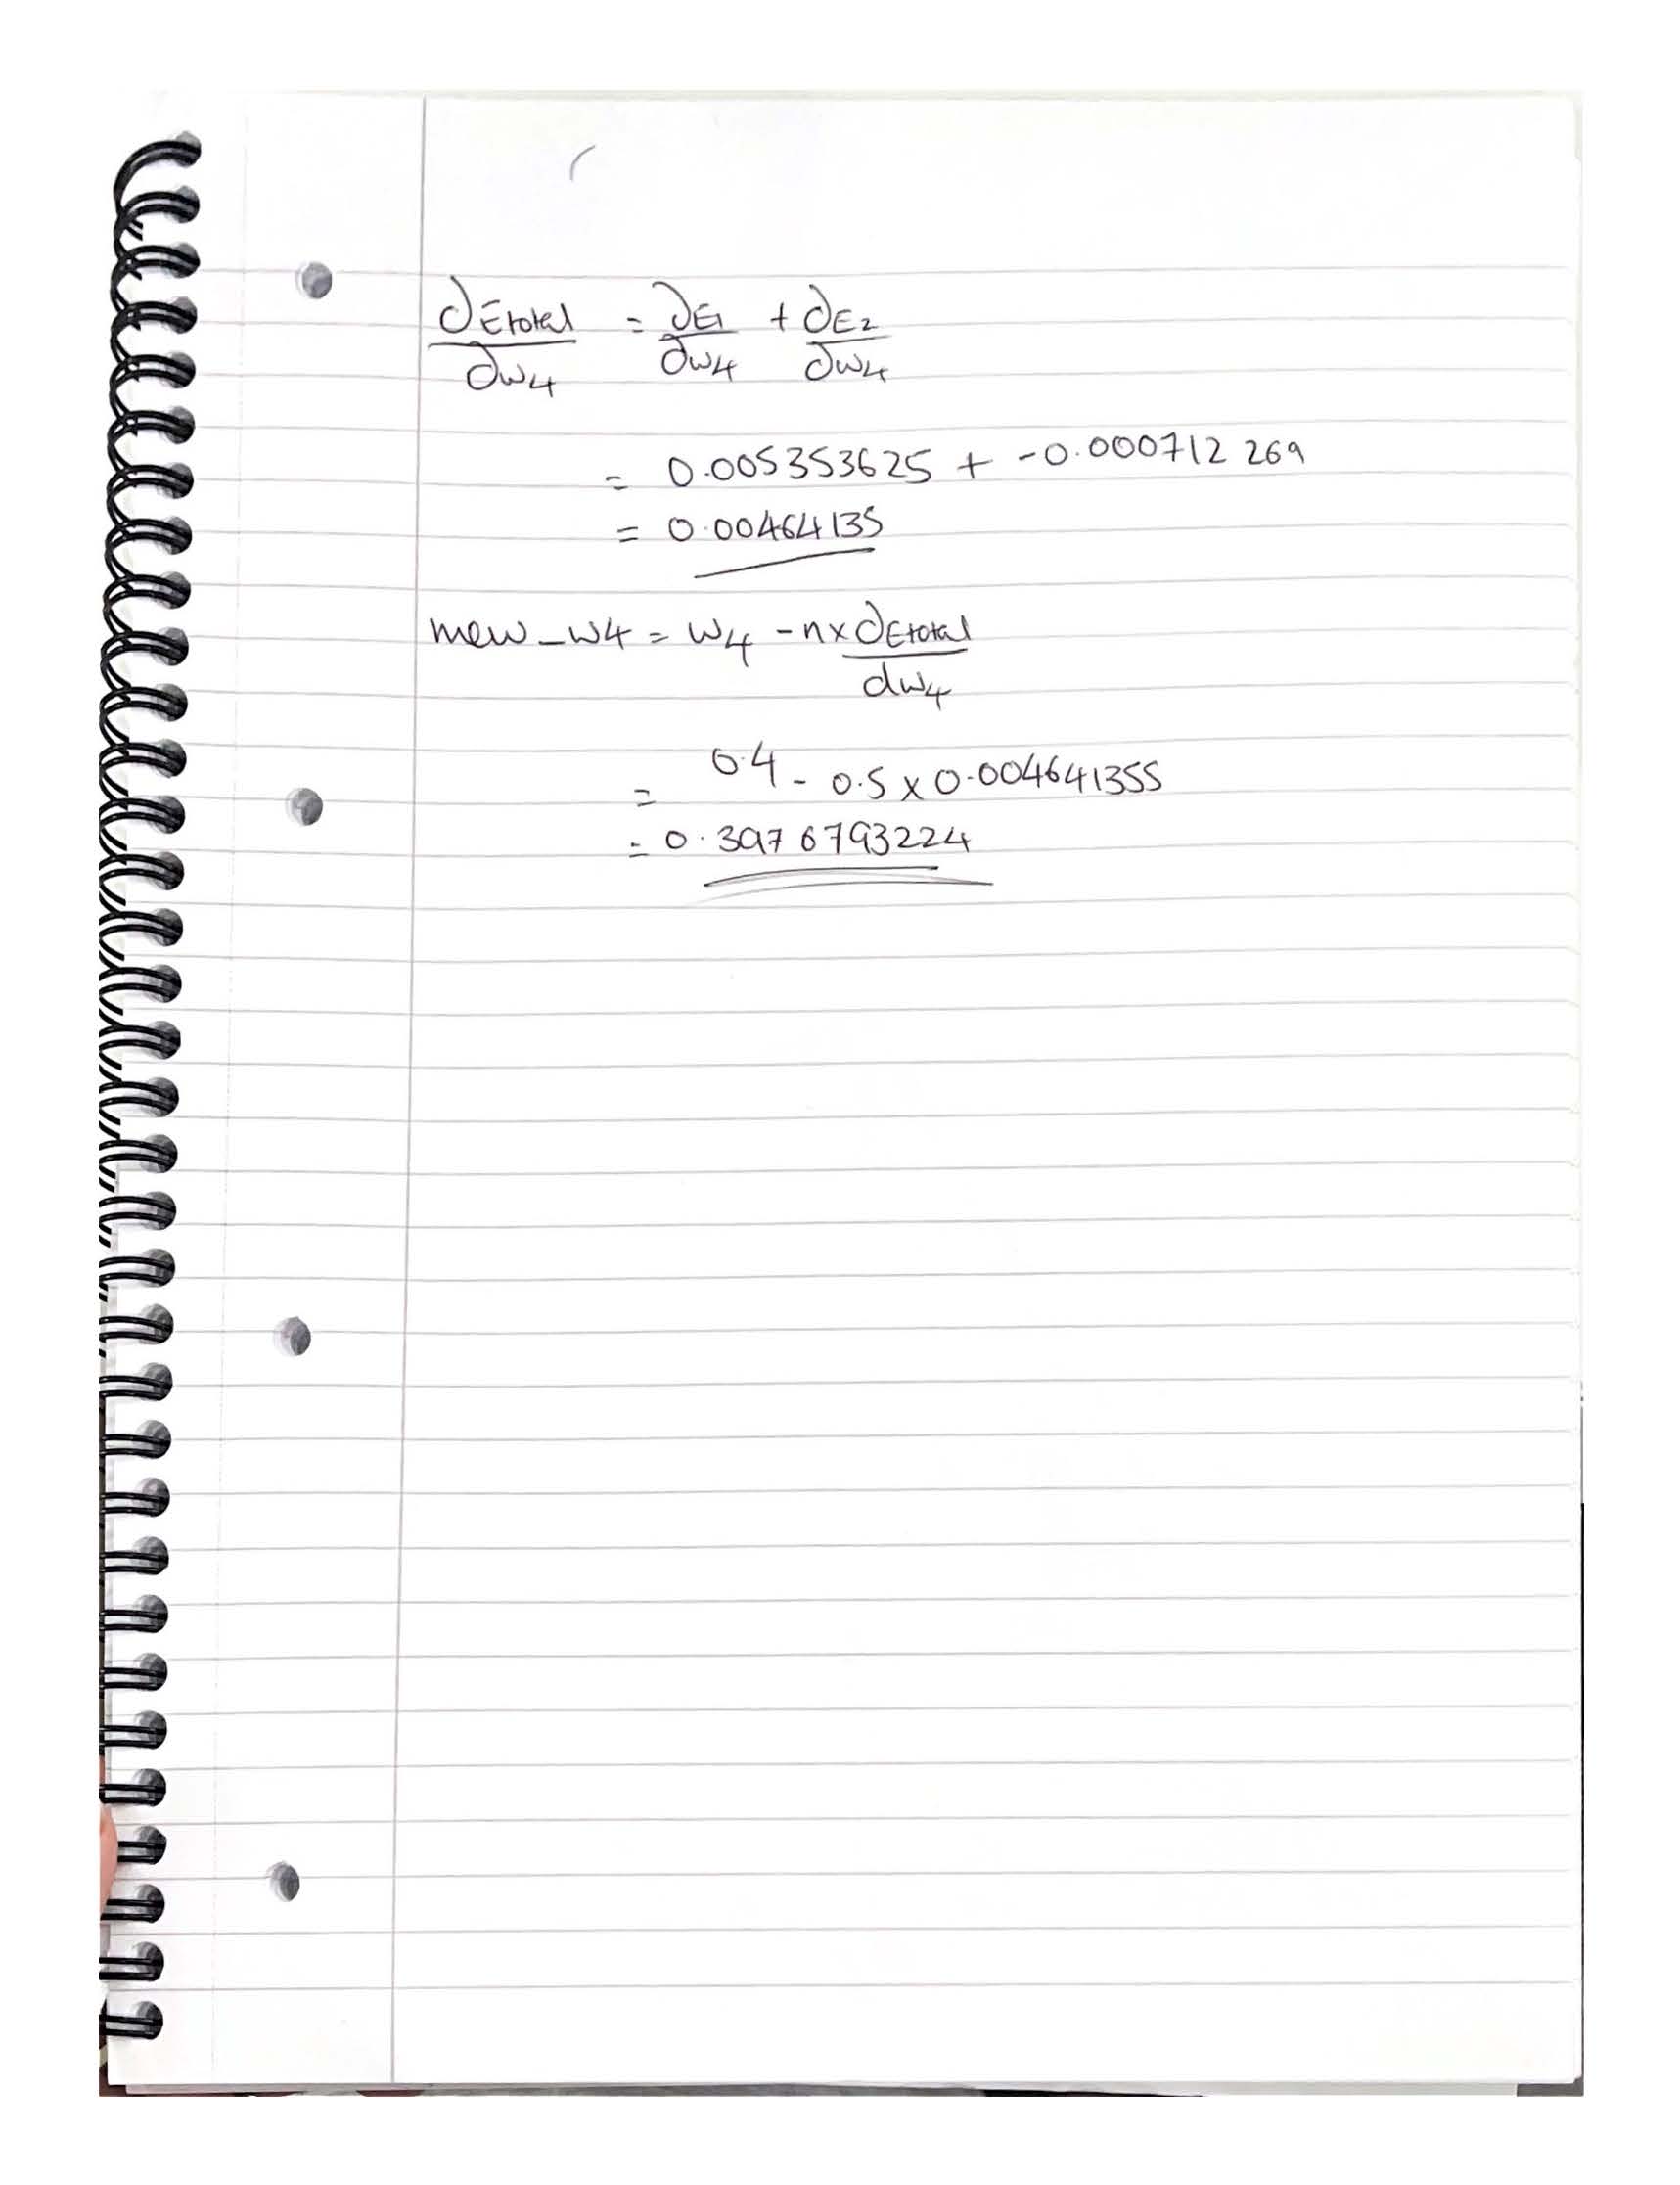 ∂Etotal/∂w4 = ∂E1/∂w4 + ∂E2/∂w4
= 0.005353625 + -0.000712269
= 0.00464135
new_w4 = w4 - n x ∂Etotal/dw4
= 0.4 - 0.5 x 0.004641355
= 0.3976793224